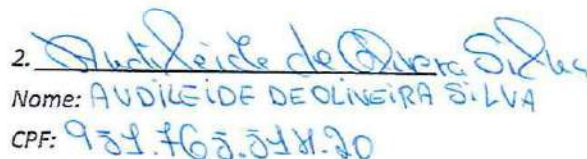 2. Audileide de Olivera Silva
Nome: AUDILEIDE DE OLIVEIRA SILVA
CPF: